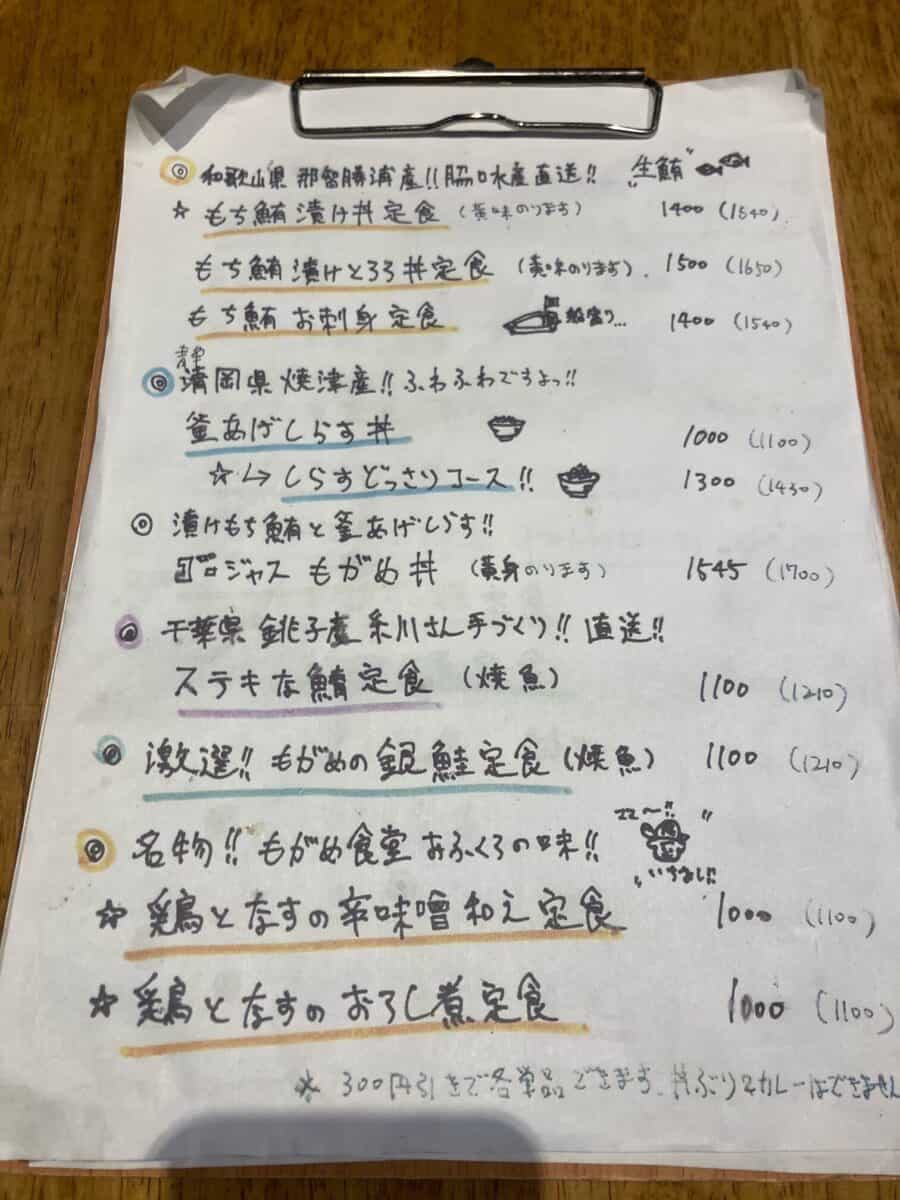 ◎ 和歌山県 那智勝浦産!! 脇口水産直送!! "生鮪"
☆ もち鮪漬け丼定食 (黄味のります) 1400 (1540)
もち鮪漬けとろろ丼定食 (黄味のります). 1500 (1650)
もち鮪お刺身定食 船盛り... 1400 (1540)
◎ 静岡県焼津産!! ふわふわですよっ!!
釜あげしらす丼 1000 (1100)
☆ ↳ しらすどっさりコース!! 1300 (1430)
◎ 漬けもち鮪と釜あげしらす!!
ゴージャス もがめ丼 (黄身のります) 1545 (1700)
◎ 千葉県 銚子産 糸川さん手づくり!! 直送!!
ステキな鯖定食 (焼魚) 1100 (1210)
◎ 激選!! もがめの銀鮭定食 (焼魚) 1100 (1210)
◎ 名物!! もがめ食堂 おふくろの味!!
☆ 鶏となすの辛味噌和え定食 1000 (1100)
☆ 鶏となすのおろし煮定食 1000 (1100)
※ 300円引きで各単品できます. 丼ぶりとカレーはできません